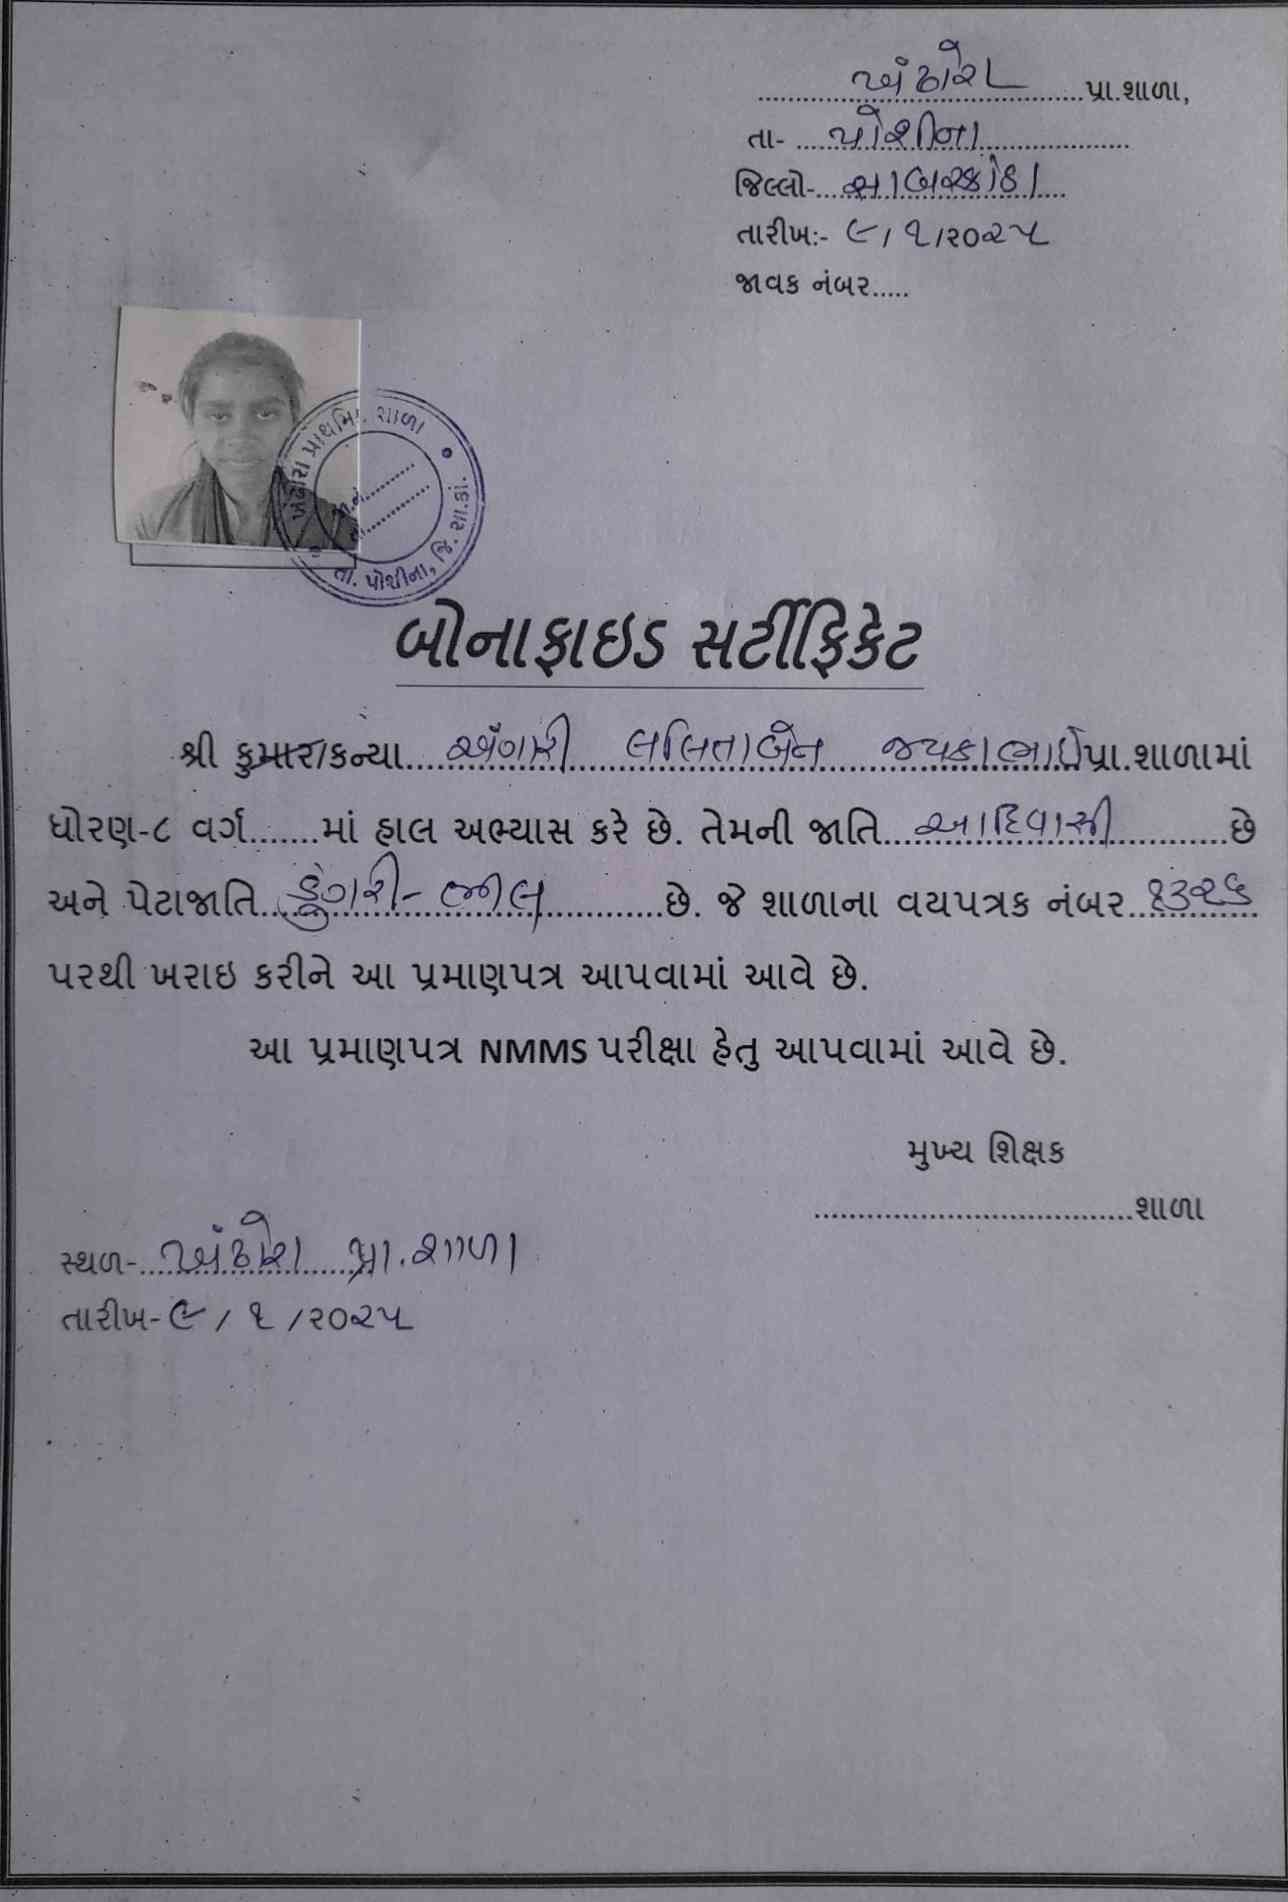 ખંઢોરા પ્રા.શાળા,
તા- પોશીના
જિલ્લો- સાબરકાંઠા
તારીખ:- ૯/૧/૨૦૨૫
જાવક નંબર.....
ખંઢોરા પ્રાથમિક શાળા
જા.નં.........
તા.........
તા. પોશીના, જિ. સા.કાં.
બોનાફાઇડ સર્ટીફિકેટ
શ્રી કુમાર/કન્યા લલિતાબેન પ્રા.શાળામાં
ધોરણ-૮ વર્ગ.......માં હાલ અભ્યાસ કરે છે. તેમની જાતિ આદિવાસી છે
અને પેટાજાતિ ડુંગરી-ભીલ છે. જે શાળાના વયપત્રક નંબર ૧૩૨૬
પરથી ખરાઇ કરીને આ પ્રમાણપત્ર આપવામાં આવે છે.
આ પ્રમાણપત્ર NMMS પરીક્ષા હેતુ આપવામાં આવે છે.
મુખ્ય શિક્ષક
................................શાળા
સ્થળ- ખંઢોરા પ્રા.શાળા
તારીખ- ૯/૧/૨૦૨૫